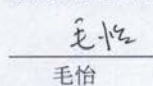 毛怡
毛怡